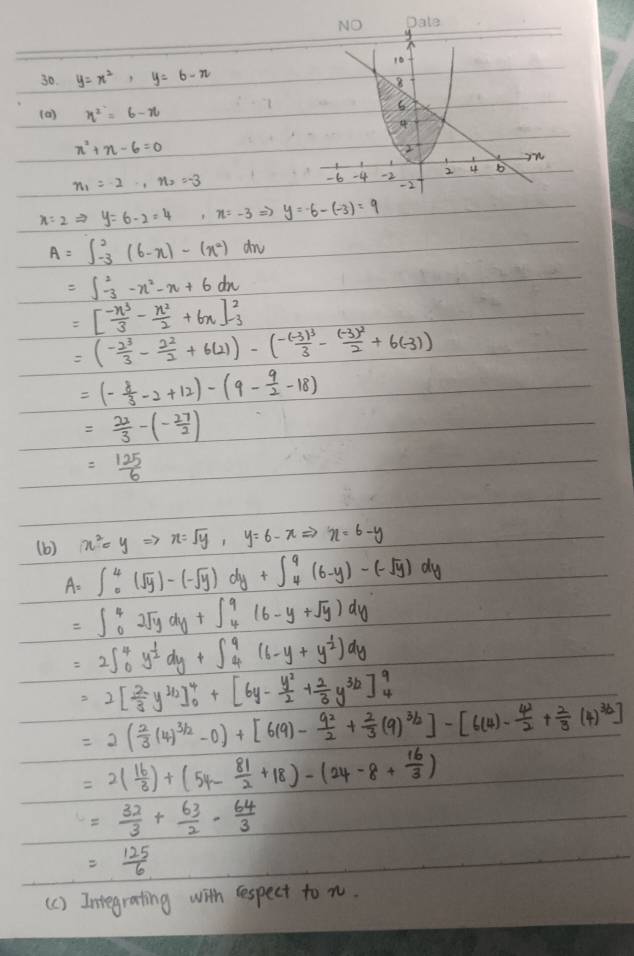 NO Date
30. y = x² , y = 6 - x
(a) x² = 6 - x
x² + x - 6 = 0
x₁ = 2 , x₂ = -3
x = 2 ⇒ y = 6 - 2 = 4 , x = -3 ⇒ y = 6 - (-3) = 9
A = ∫₋₃² (6 - x) - (x²) dx
= ∫₋₃² -x² - x + 6 dx
= [-x³/3 - x²/2 + 6x]₋₃²
= (-2³/3 - 2²/2 + 6(2)) - (-(-3)³/3 - (-3)²/2 + 6(-3))
= (-8/3 - 2 + 12) - (9 - 9/2 - 18)
= 22/3 - (-27/2)
= 125/6
y
10
8
6
4
2
-6 -4 -2 2 4 6 x
-2
(b) x² = y ⇒ x = √y , y = 6 - x ⇒ x = 6 - y
A = ∫₀⁴ (√y) - (-√y) dy + ∫₄⁹ (6-y) - (-√y) dy
= ∫₀⁴ 2√y dy + ∫₄⁹ (6 - y + √y) dy
= 2∫₀⁴ y^½ dy + ∫₄⁹ (6 - y + y^½) dy
= 2[2/3 y^3/2]₀⁴ + [6y - y²/2 + 2/3 y^3/2]₄⁹
= 2(2/3 (4)^3/2 - 0) + [6(9) - 9²/2 + 2/3 (9)^3/2] - [6(4) - 4²/2 + 2/3 (4)^3/2]
= 2(16/3) + (54 - 81/2 + 18) - (24 - 8 + 16/3)
= 32/3 + 63/2 - 64/3
= 125/6
(c) Integrating with respect to x.